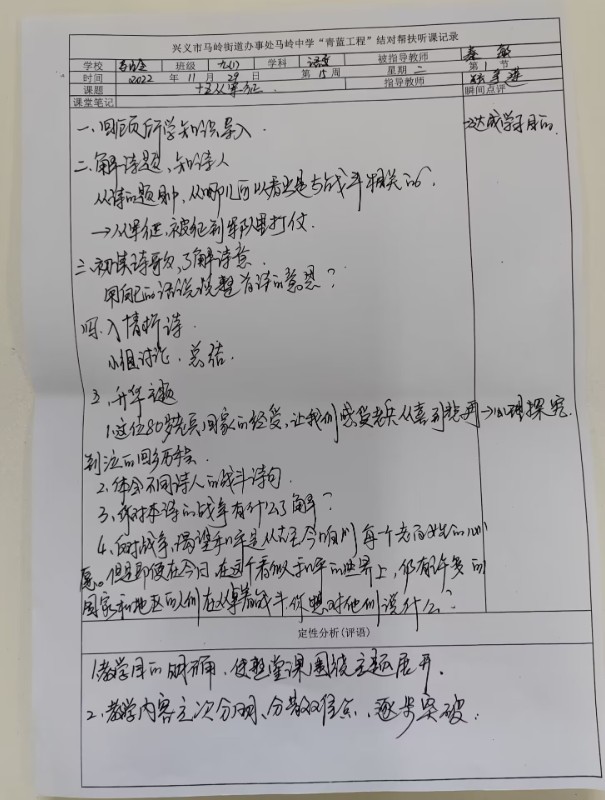 兴义市马岭街道办事处马岭中学“青蓝工程”结对帮扶听课记录
学校 班级 九(1) 学科 语文 被指导教师 秦敏
时间 2022 年 11 月 29 日 第 15 周 星期 二 第 1 节
课题 十五从军征 指导教师 瞬间点评
课堂笔记
一、回顾所学知识导入. →达成学习目的.
二、解诗题,知诗人
从诗的题目中,从哪儿可以看出是与战斗相关的.
→从军征,被征到军队里打仗.
三、初读诗歌,了解诗意
用自己的话说说整首诗的意思?
四、入情析诗
小组讨论、总结.
五、升华主题
1.这位80岁老兵回家的经受,让我们感受老兵从喜到悲再→心理探究.
到泣的回乡历程
2、体会不同诗人的战斗诗句
3、你对本诗的战争有什么了解?
4、反对战争,渴望和平是从古至今咱们每一个老百姓的心
愿。但是即便在今日在这个看似和平的世界上,仍有许多的
国家和地区的人们在从事着战斗你想对他们说什么?
定性分析(评语)
1.教学目的明确,使整堂课围绕主题展开.
2、教学内容主次分明、分散双难点、逐步突破.